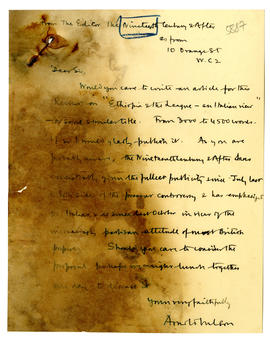 5887
From The Editor The Nineteenth Century & After
as from
10 Orange St
W.C 2
Dear Sir
Would you care to write an article for this
Review on "Ethiopia & the League – an Italian view"
or some similar title. From 3000 to 4500 words.
If so I would gladly publish it. As you are
probably aware the Nineteenth Century & After has
consistently given the fullest publicity since July last
both sides of the present controversy & has emphasized
Italian since last October in view of the
increasingly partisan attitude of most British
papers. Should you care to consider the
proposal perhaps we might lunch together
one day to discuss it.
Yours very faithfully
Arnold Wilson